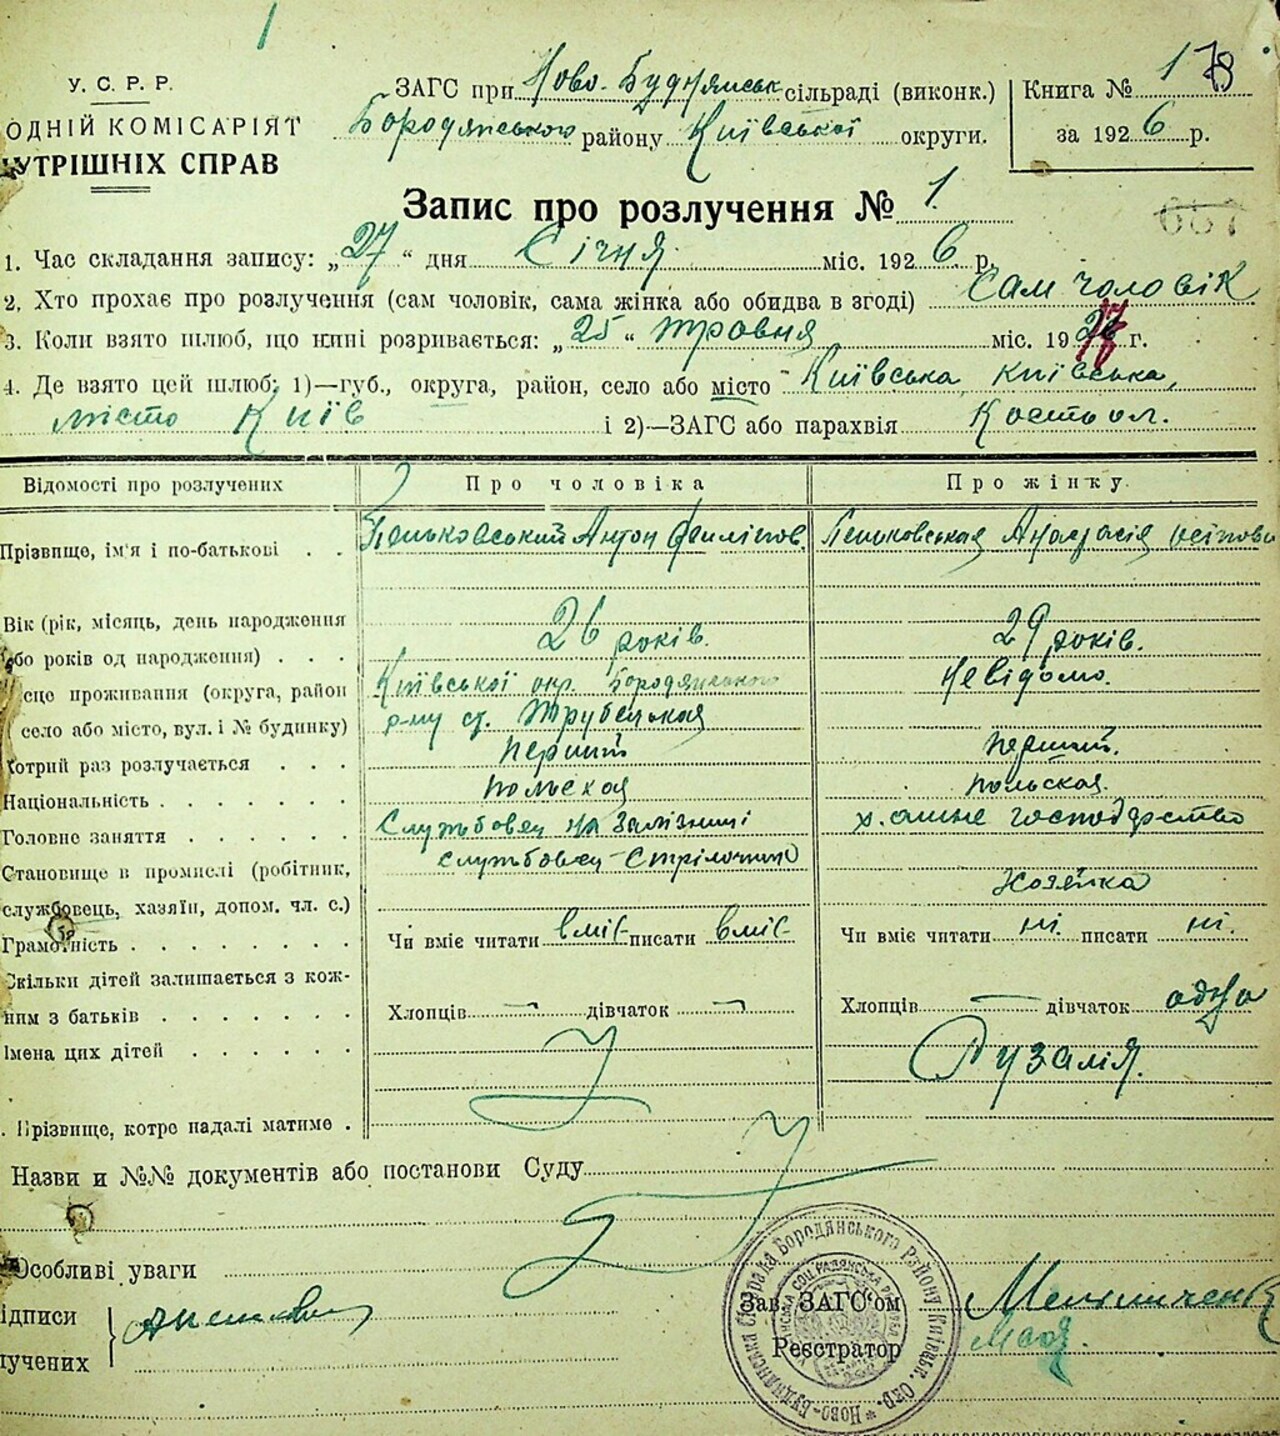 1
У. С. Р. Р.
ОДНІЙ КОМІСАРІЯТ
УТРІШНІХ СПРАВ
ЗАГС при Ново-Буднянськ сільраді (виконк.)
Бородянського району Київської округи.
Книга № 1
за 1926 р.
Запис про розлучення № 1.
1. Час складання запису: „27“ дня Січня міс. 1926 р.
2. Хто прохає про розлучення (сам чоловік, сама жінка або обидва в згоді) Сам чоловік
3. Коли взято шлюб, що нині розривається: „25“ травня міс. 19 г.
4. Де взято цей шлюб: 1)—губ., округа, район, село або місто Київська, київська,
місто Київ і 2)—ЗАГС або парахвія Костьол.
Відомості про розлучених Про чоловіка Про жінку.
Прізвище, ім'я і по-батькові . . Пеньковський Антон Филіпов. Пеньковськая Анастасія Осіпов
Вік (рік, місяць, день народження
бо років од народження) . . . 26 років. 29 років.
сце проживання (округа, район Київської окр. Бородянського Невідомо.
село або місто, вул. і № будинку) р-ну ст. Трубецькая
отрий раз розлучається . . . перший перший.
Національність . . . . . . . польская польская.
Головне заняття . . . . . . Службовец на залізниці х. господарство
Становище в промислі (робітник, службовец-Стрілочник
службовець, хазяїн, допом. чл. с.) Хозяйка
Грамотність . . . . . . . . Чи вміє читати вміє писати вміє Чи вміє читати ні. писати ні.
Скільки дітей залишається з кож-
ним з батьків . . . . . . . Хлопців — дівчаток — Хлопців — дівчаток одна
Імена цих дітей . . . . . . Рузалія.
Прізвище, котре надалі матиме .
Назви и №№ документів або постанови Суду
Особливі уваги
ідписи
лучених
Зав. ЗАГС'ом
Реєстратор
Ново-Буднянська Сільрада Бородянського Району Київськ. Окр.